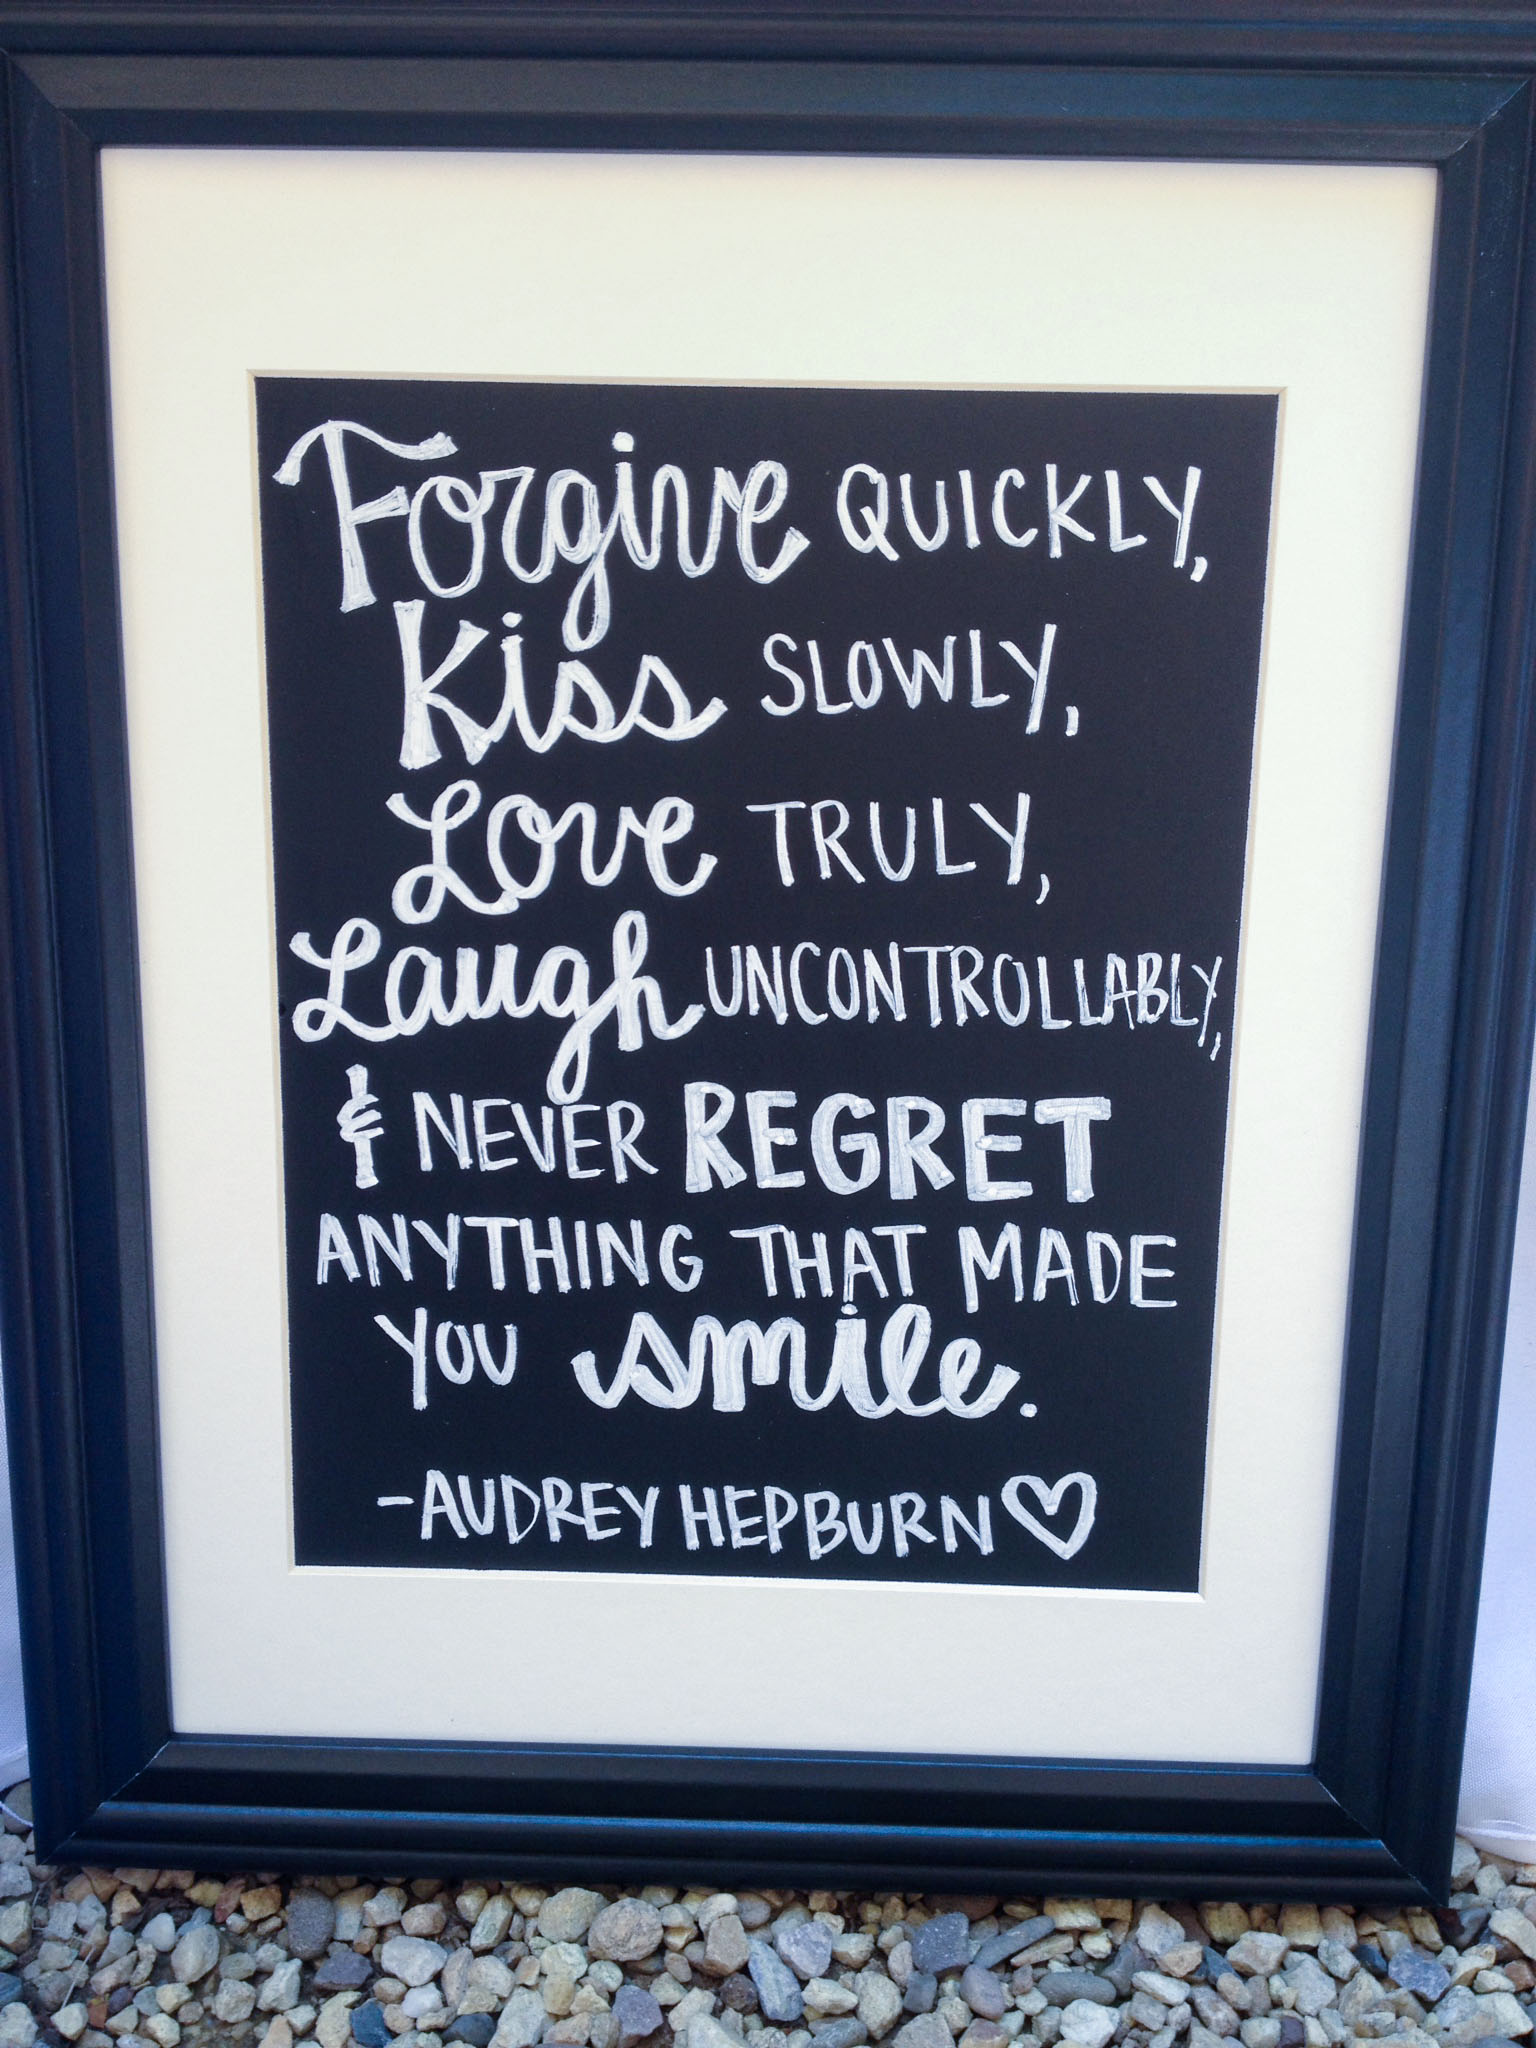 Forgive QUICKLY,
Kiss SLOWLY,
Love TRULY,
Laugh UNCONTROLLABLY,
& NEVER REGRET
ANYTHING THAT MADE
YOU smile.
-AUDREY HEPBURN♡